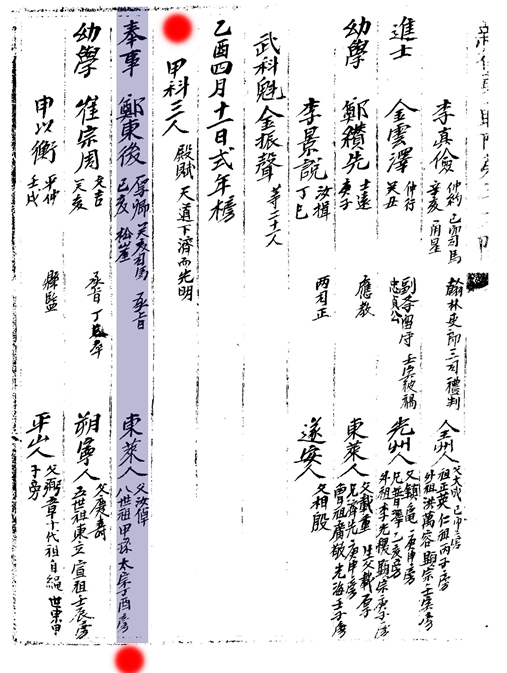 李真儉 仲約 辛亥 己酉司馬 翰林吏郎三司禮判 全州人 父大成 祖正英 仁祖丙子房 外祖洪萬容 顯宗壬寅房
進士 金雲澤 仲行 癸丑 忠貞公 壬寅被禍 光州人 父鎮龜 庚申房 兄普澤 乙亥房 外祖李光稷 顯宗庚子房
幼學 鄭纘先 士述 庚子 應教 東萊人 父載重 生父載厚 兄濟先 庚申房 曾祖廣敬 光海壬子房
李景說 汝楫 丁巳 兩司正 遂安人 父相殷
武科魁 金振聲 等二十一人
乙酉四月十一日式年榜
甲科三人 殿賦 天道下濟而光明
奉事 鄭東後 厚卿 己亥 癸亥司馬 松崖 承旨 東萊人 八世祖甲孫 太宗丁酉房
幼學 崔宗周 文吉 癸亥 承旨 丁 卒 朔寧人 父慶壽 五世祖東立 宣祖壬辰房
申以衡 平仲 壬戌 縣監 平山人 父弼章 十代祖自繩 世宗甲子房